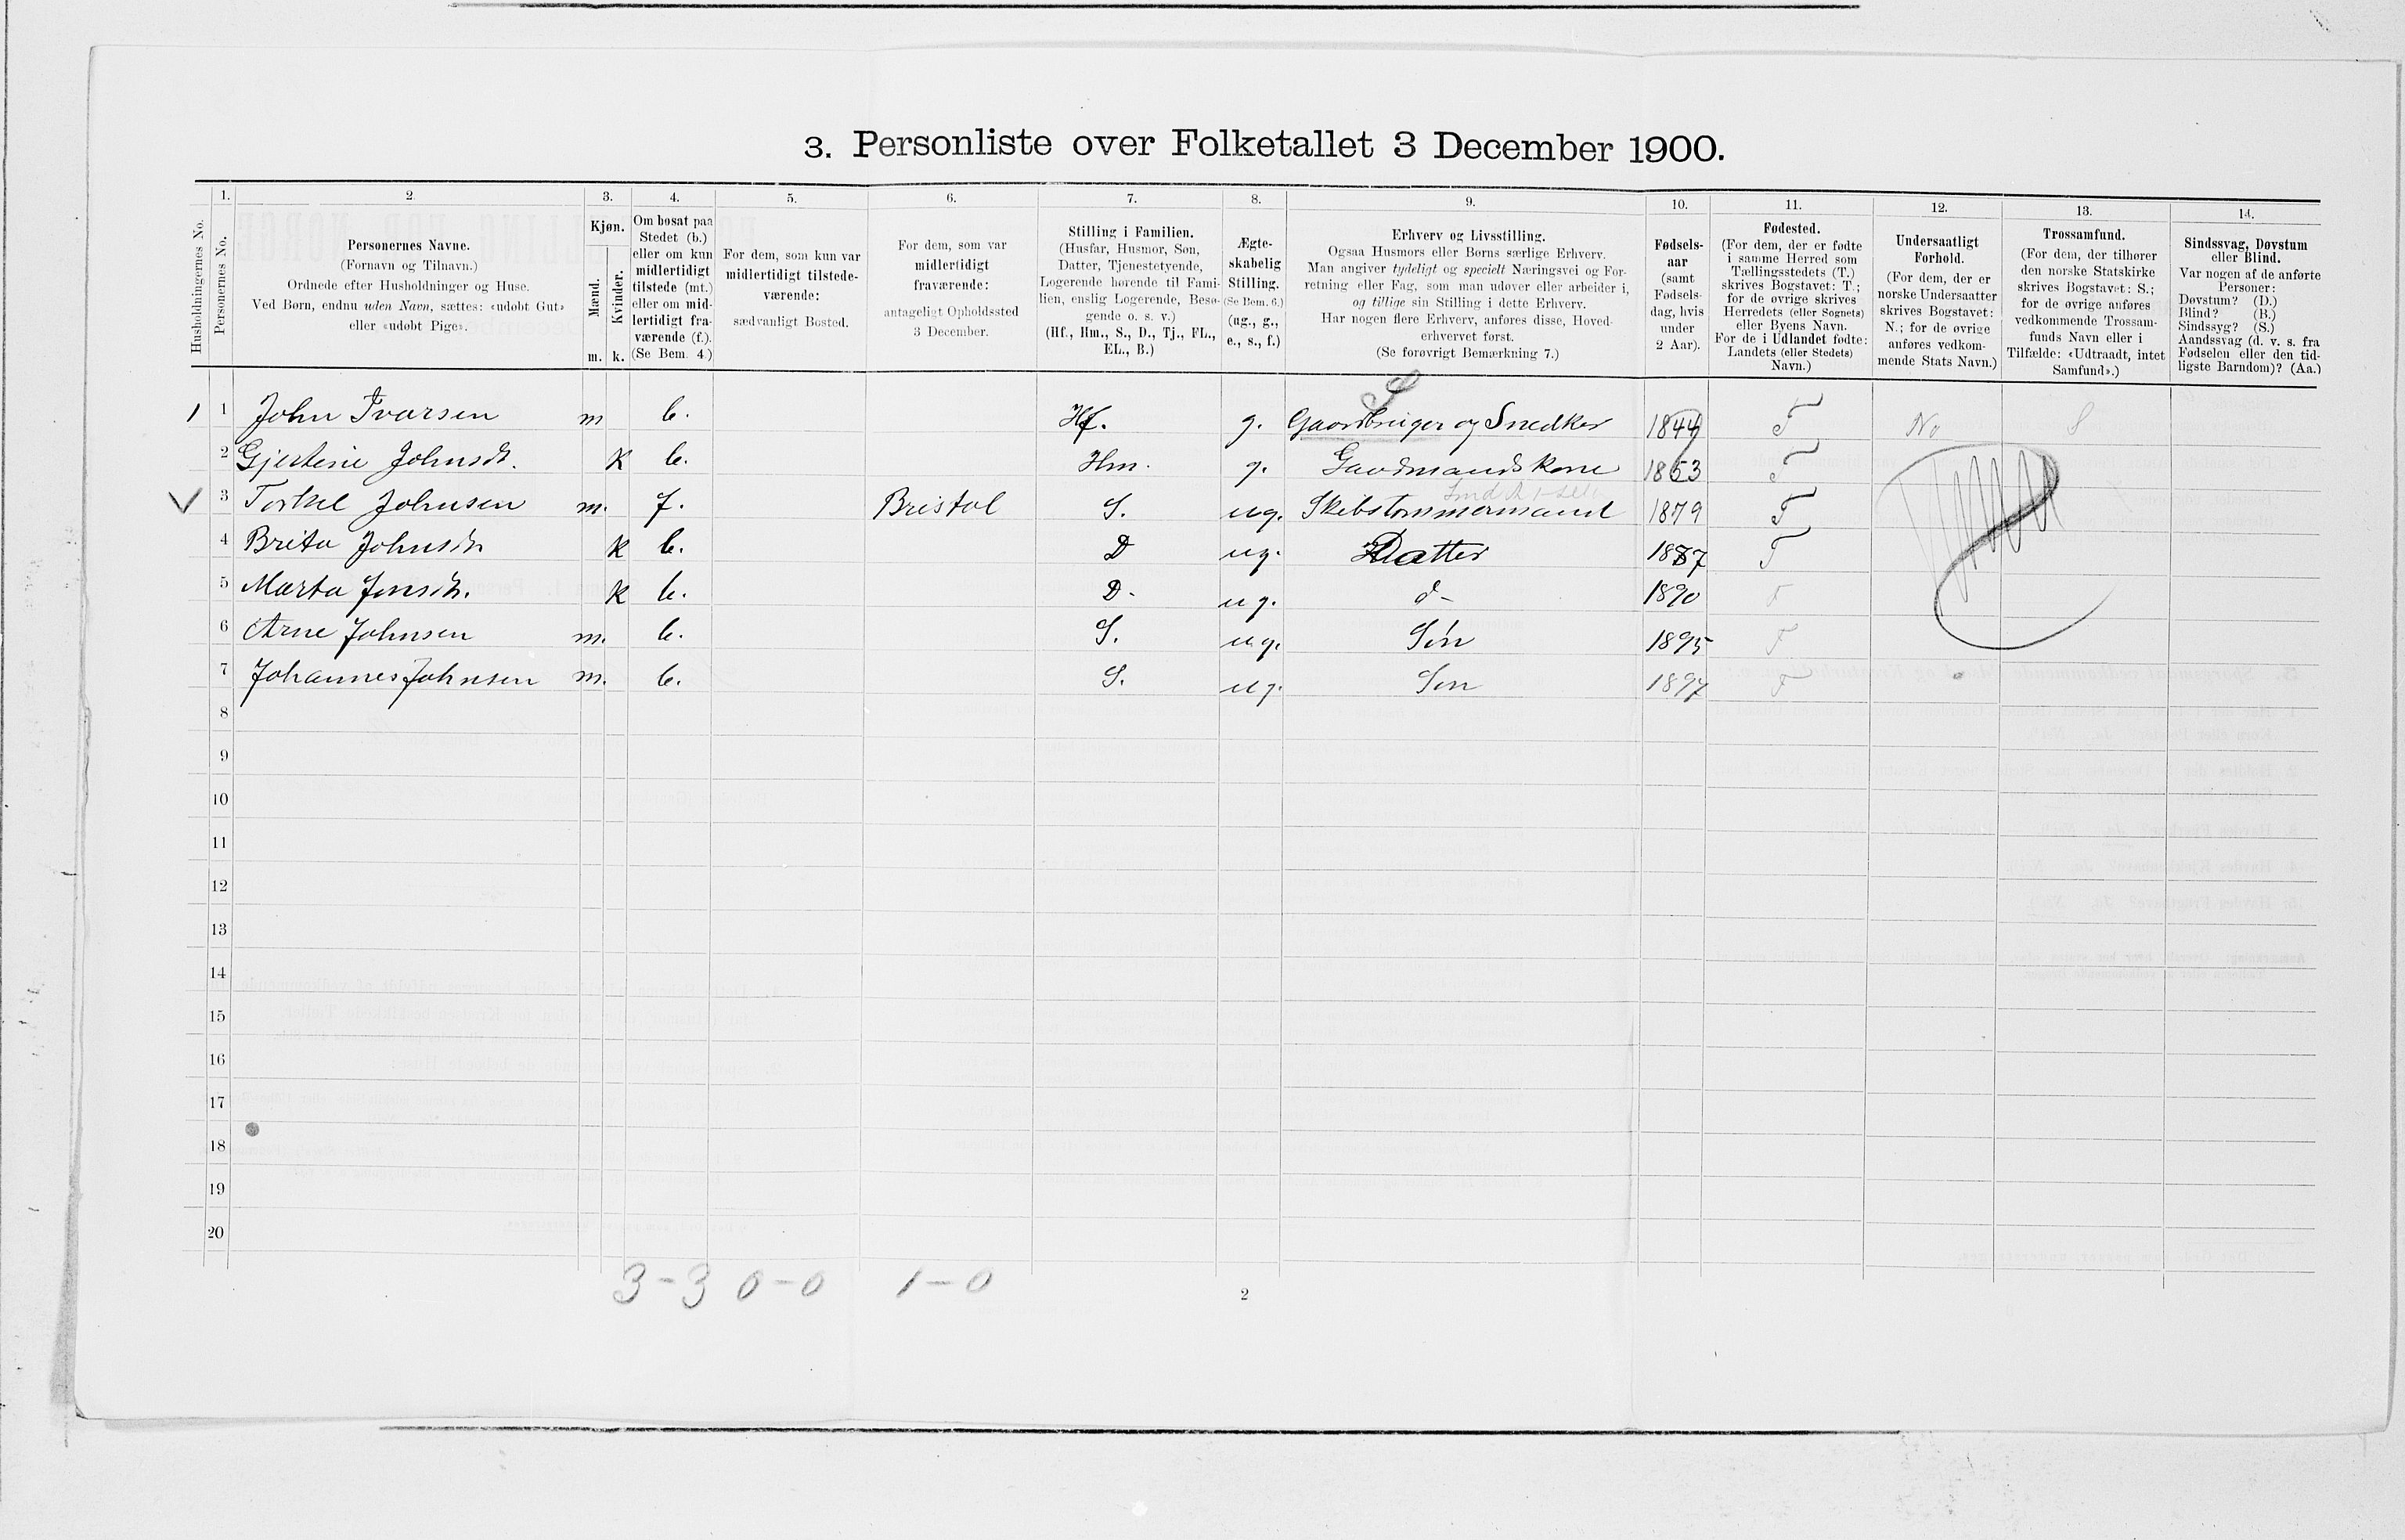 3. Personliste over Folketallet 3 December 1900.
Husholdningernes No.
1.
Personernes No.
2
Personernes Navne.
(Fornavn og Tilnavn.)
Ordnede efter Husholdninger og Huse.
Ved Børn, endnu uden Navn, sættes: «udøbt Gut»
eller «udøbt Pige».
3.
Kjøn.
Mænd.
Kvinder.
m. k.
4.
Om bosat paa
Stedet (b.)
eller om kun
midlertidigt
tilstede (mt.)
eller om mid-
lertidigt fra-
værende (f.).
(Se Bem. 4.)
5.
For dem, som kun var
midlertidigt tilstede-
værende:
sædvanligt Bosted.
6.
For dem, som var
midlertidigt
fraværende:
antageligt Opholdssted
3 December.
7.
Stilling i Familien.
(Husfar, Husmor, Søn,
Datter, Tjenestetyende,
Logerende hørende til Fami-
lien, enslig Logerende, Besø-
gende o. s. v.)
(Hf., Hm., S., D., Tj., FL.,
EL., B.)
8.
Ægte-
skabelig
Stilling.
(Se Bem. 6.)
(ug., g.,
e., s., f.)
9.
Erhverv og Livsstilling.
Ogsaa Husmors eller Børns særlige Erhverv.
Man angiver tydeligt og specielt Næringsvei og For-
retning eller Fag, som man udøver eller arbeider i,
og tillige sin Stilling i dette Erhverv.
Har nogen flere Erhverv, anføres disse, Hoved-
erhvervet først.
(Se forøvrigt Bemærkning 7.)
10.
Fødsels-
aar
(samt
Fødsels-
dag, hvis
under
2 Aar).
11.
Fødested.
(For dem, der er fødte
i samme Herred som
Tællingsstedets (T.)
skrives Bogstavet: T.;
for de øvrige skrives
Herredets (eller Sognets)
eller Byens Navn.
For de i Udlandet fødte:
Landets (eller Stedets)
Navn.)
12.
Undersaatligt
Forhold.
(For dem, der er
norske Undersaatter
skrives Bogstavet:
N.; for de øvrige
anføres vedkom-
mende Stats Navn.)
13.
Trossamfund.
(For dem, der tilhører
den norske Statskirke
skrives Bogstavet: S.;
for de øvrige anføres
vedkommende Trossam-
funds Navn eller i
Tilfælde: «Udtraadt, intet
Samfund».)
14.
Sindssvag, Døvstum
eller Blind.
Var nogen af de anførte
Personer:
Døvstum? (D.)
Blind? (B.)
Sindssyg? (S.)
Aandssvag (d. v. s. fra
Fødselen eller den tid-
ligste Barndom)? (Aa.)
S
1 1 John Ivarsen m b. Hf. g. Gaardbruger og Snedker 1844 T No S
2 Gjertine Johnsdt. K b. Hm. g. Gardmandskone 1853 T
3 Torkel Johnsen m. f. Bristol S. ug. Skibstømmermand 1879 T
4 Brita Johnsdt K b. D ug. Datter 1887 T
5 Marta Jonsdt. K b. D - ug. d- 1890 T
6 Arne Johnsen m. b. S. ug. Søn 1895 T
7 Johannes Johnsen m. b. S. ug. Søn 1897 T
8
9
10
11
12
13
14
15
16
17
18
19
20
3 - 3 0 - 0 1 - 0
2